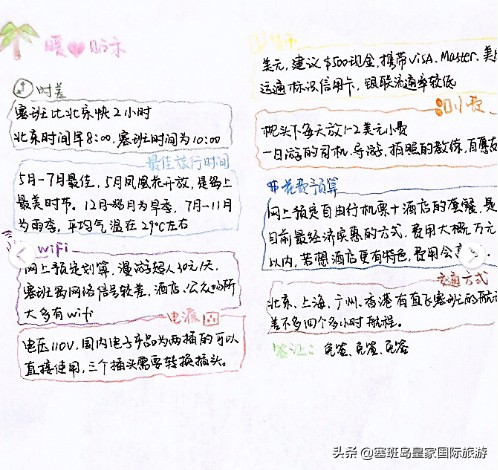 暖❤贴示
①时差
塞班比北京快2小时
北京时间早8:00,塞班时间为10:00
最佳旅行时间
5月-7月最佳,5月凤凰花开放,是岛上
最美时节。12月-6月为旱季,7月-11月
为雨季,平均气温在29℃左右
wifi
网上预定划算,漫游超人30元/天,
塞班岛网络信号较差,酒店、公众场所
大多有wifi
电源
电压110V,国内电子产品为两插的可以
直接使用,三个插头需要转换插头。
美元,建议$500现金,携带VISA、Master、美
运通标识信用卡,银联流通率较低
小费
枕头下每天放1-2美元小费
一日游的司机、导游、拍照的教练,
花费预算
网上预定自由行机票+酒店的套餐,是
目前最经济实惠的方式,费用大概七万元
以内,若想酒店更有特色,费用会
交通方式
北京、上海、广州、香港有直飞塞班的航
差不多四个多小时航程。
签证:免签、免签、免签
头条@塞班岛皇家国际旅游